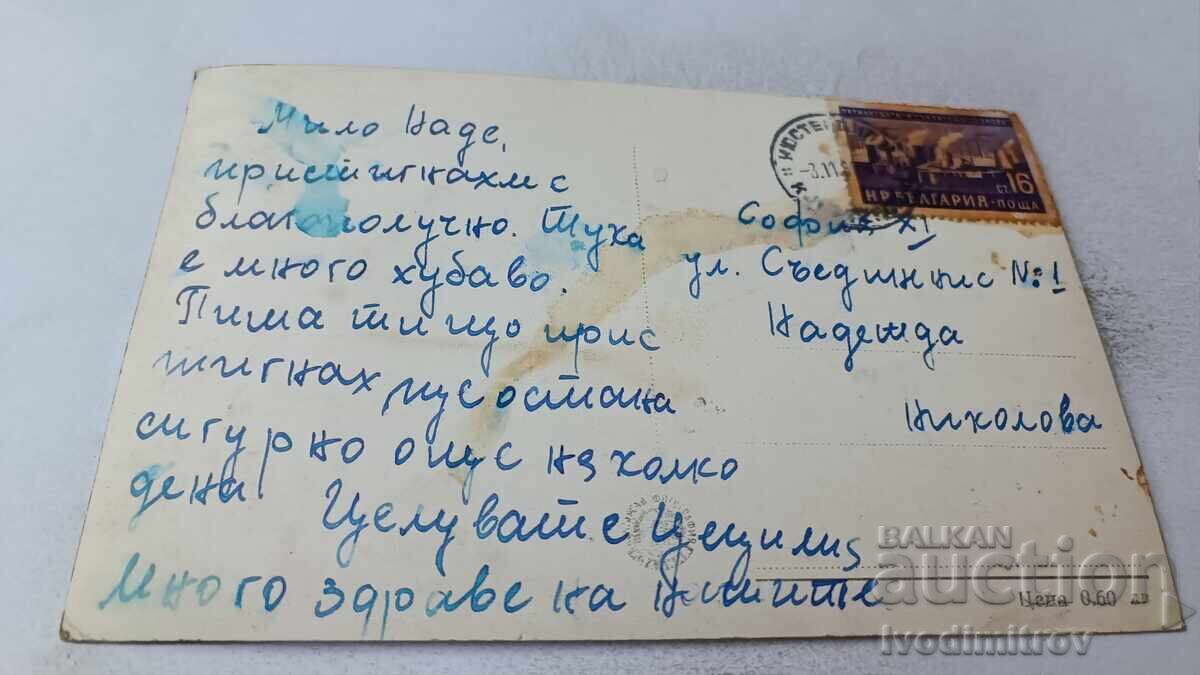 Мило Наде,
пристигнахме
благополучно. Тука
е много хубаво.
Пима ти що прис
тигнах ще остана
сигурно още няколко
дена! Целувате Цецилия
Много здраве на
КЮСТЕНДИЛ
-3.11
16
СТ.
НР БЪЛГАРИЯ·ПОЩА
София XI
ул. Съединение №: 1
Надежда
Николова
Цена 0.60 лв
BALKAN
auction
Ivodimitrov